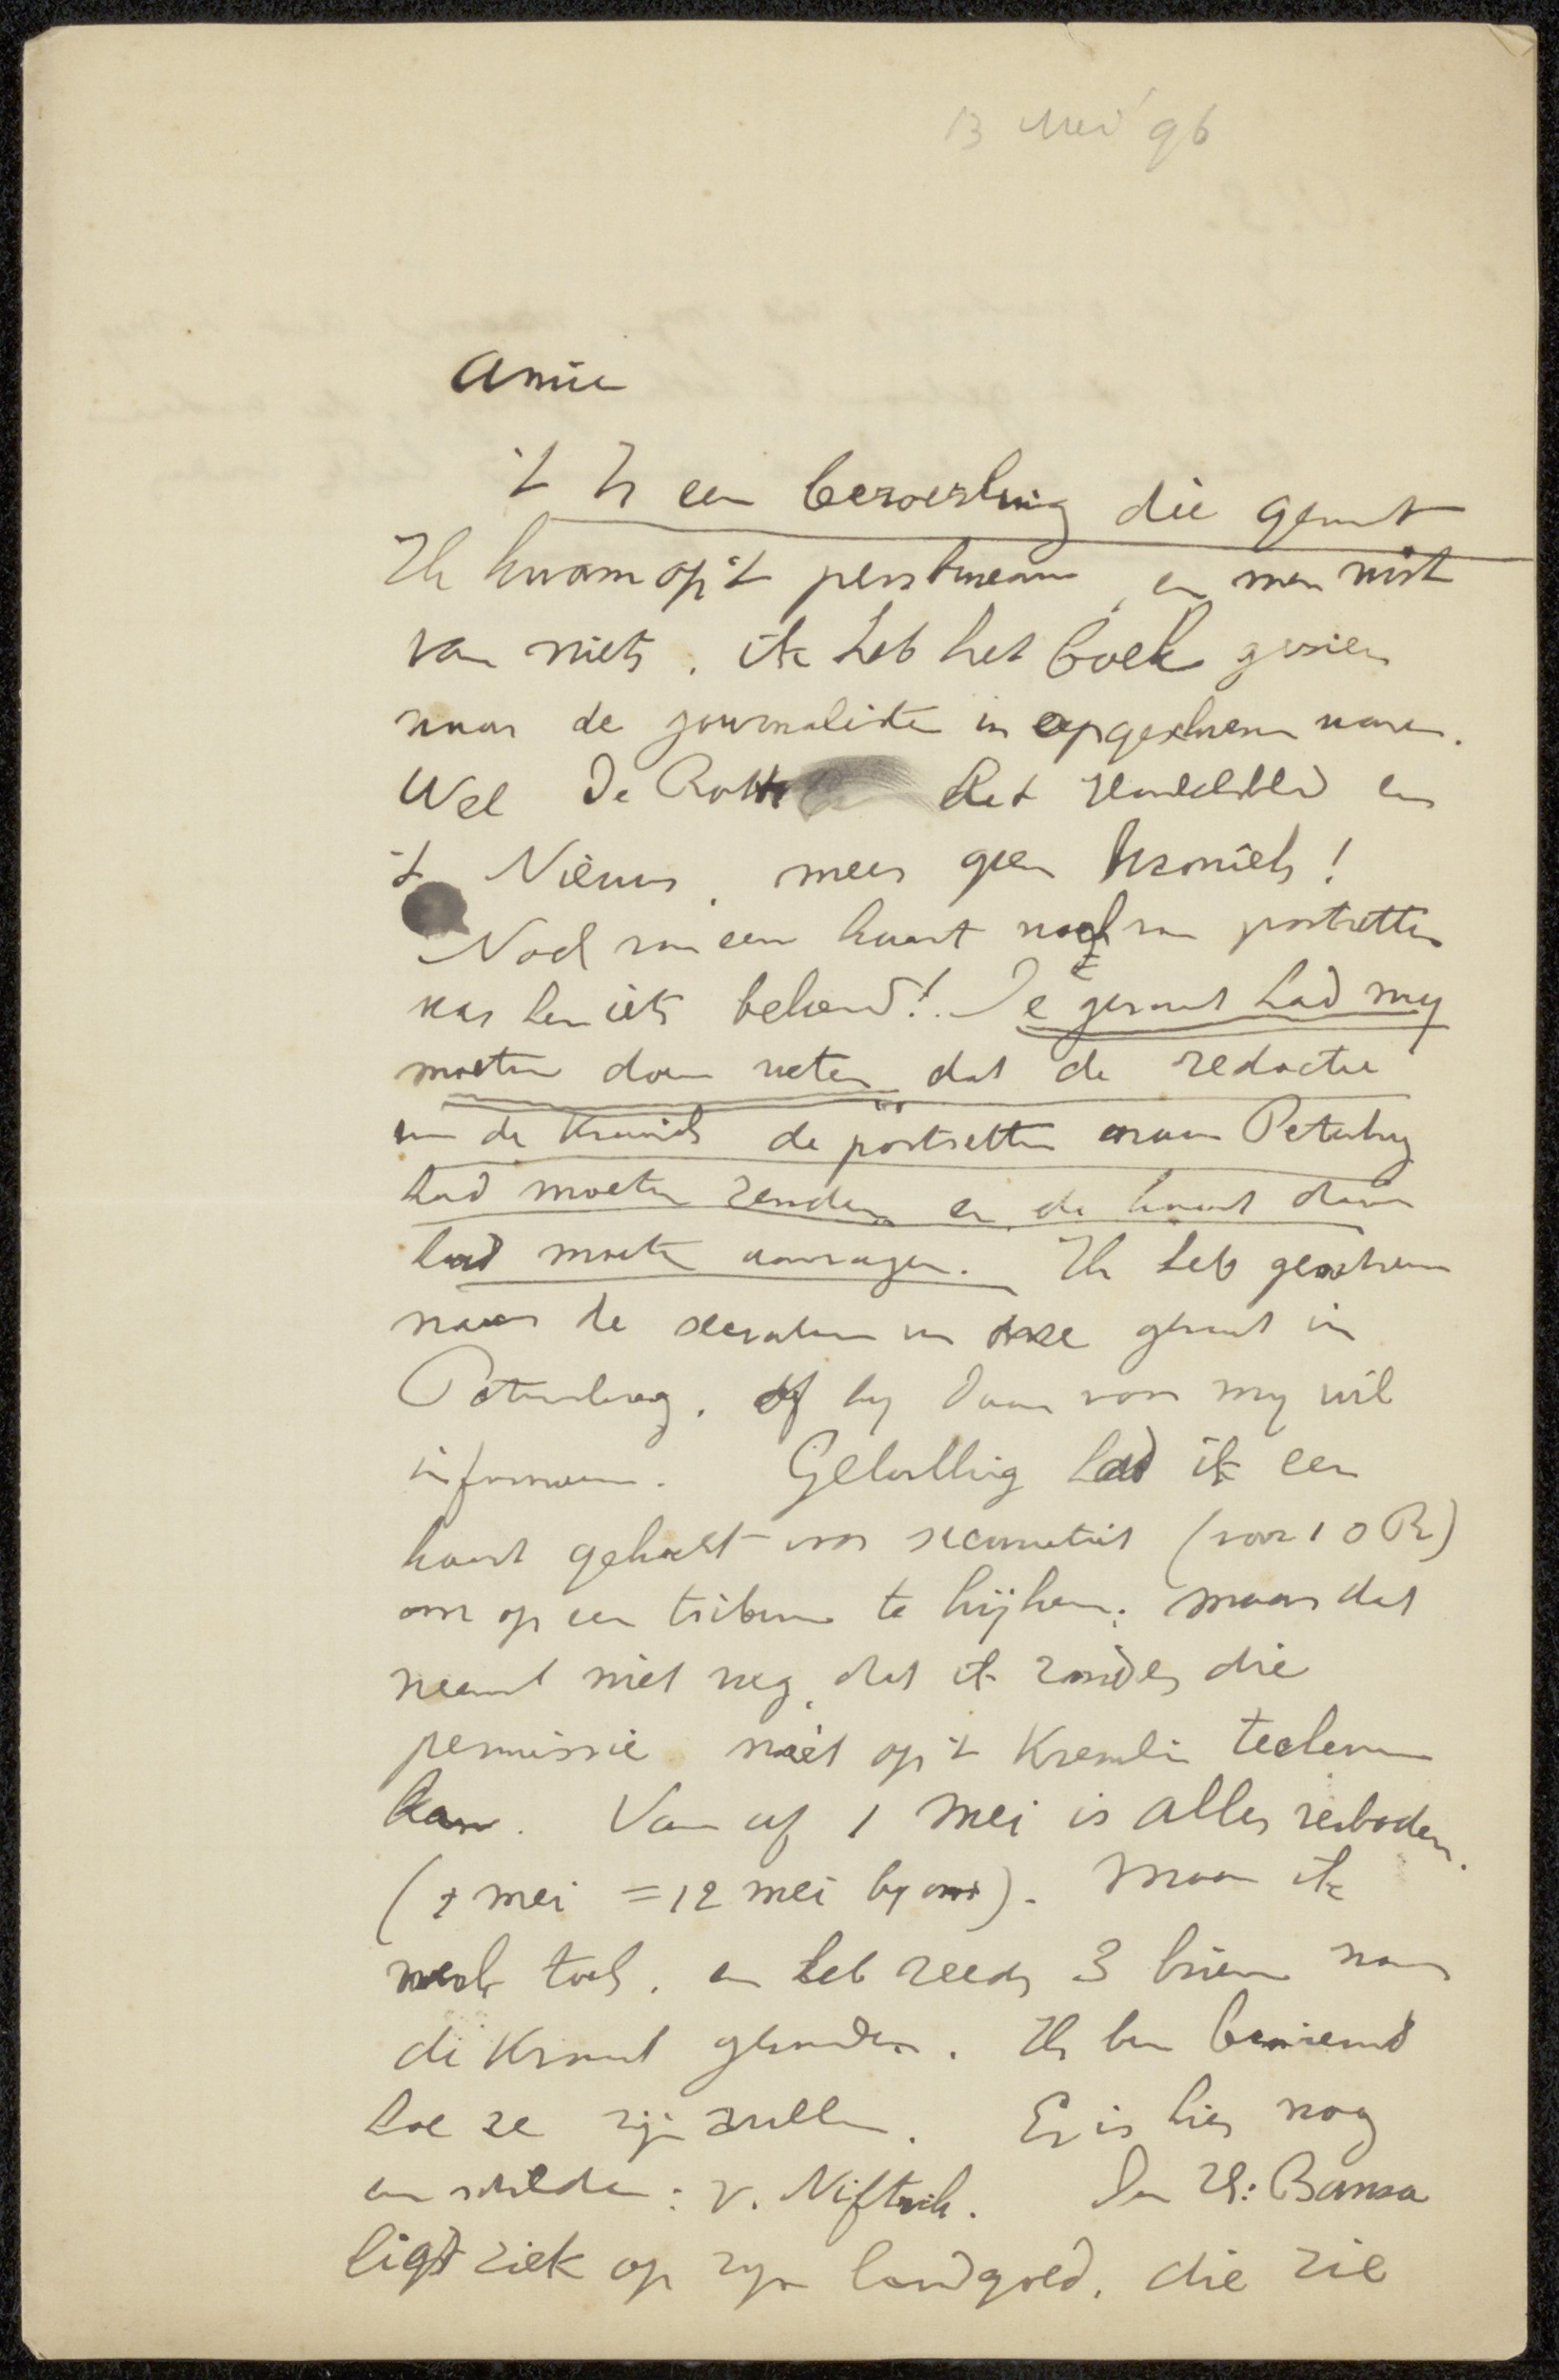 13 Mei '96
Amice
't Is een beroerling die gezant
Ik kwam op 't persbureau, en men wist
van niets. ik heb het boek gezien
waar de journalisten in opgeschreven waren.
Wel De Rott Het Handelsblad en
't Nieuws, meer geen kroniek!
Noch van een kaart noch van portretten
was hen iets bekend! De gezant had my
moeten doen weten dat de redactie
van de Kroniek de portretten naar Petersburg
had moeten zenden en de kaart daar
had moeten aanvragen. Ik heb geschreven
naar de secretaris van onze gezant in
Petersburg, of hy daar voor my wil
informeeren. Gelukkig had ik een
kaart gekocht voor securiteit (voor 10 R)
om op een tribune te kijken; maar dat
neemt niet weg, dat ik zonder die
permissie niet op 't Kremlin teekenen
kan. Van af 1 Mei is alles verboden.
(1 mei = 12 mei by ons). Maar ik
werk toch, en heb reeds 3 brieven naar
de Krant gezonden. Ik ben benieuwd
hoe ze zijn zullen. Er is hier nog
een schilder: v. Niftrik. Den H: Bansa
ligt ziek op zyn landgoed, die zie